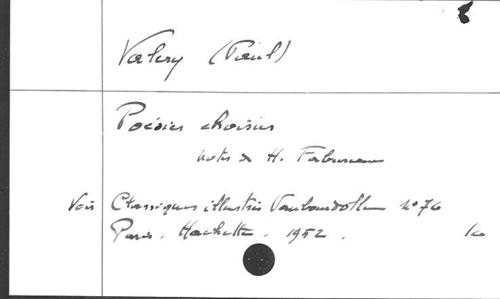 Valery (Paul)
Poésies choisies
notes de H. Fabureau
Voir Classiques illustrés Vaubourdolle n° 76
Paris. Hachette. 1952.